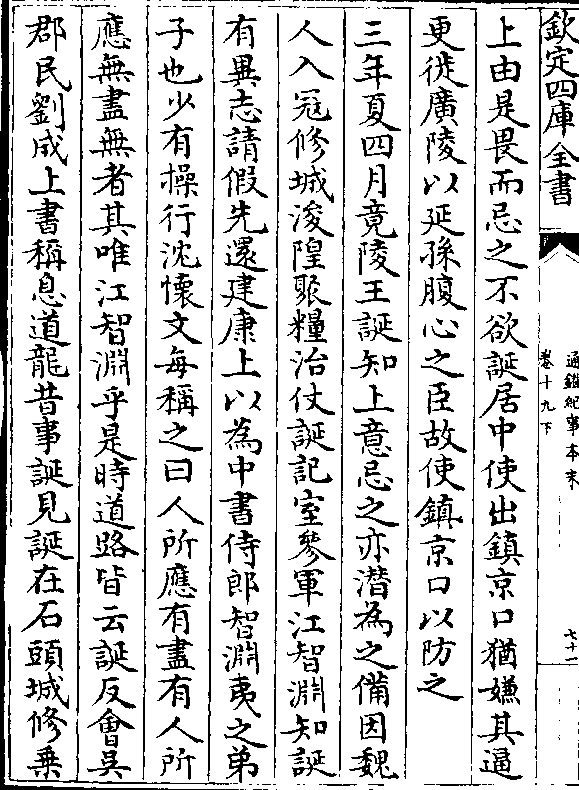 欽定四庫全書
通鑑紀事本末
卷十九下
七十一
上由是畏而忌之不欲誕居中使出鎮京口猶嫌其逼
更徙廣陵以延孫腹心之臣故使鎮京口以防之
三年夏四月竟陵王誕知上意忌之亦潛為之備因魏
人入冦修城浚隍聚糧治仗誕記室參軍江智淵知誕
有異志請假先還建康上以為中書侍郎智淵夷之弟
子也少有操行沈懷文每稱之曰人所應有盡有人所
應無盡無者其唯江智淵乎是時道路皆云誕反會吳
郡民劉成上書稱息道龍昔事誕見誕在石頭城修乗